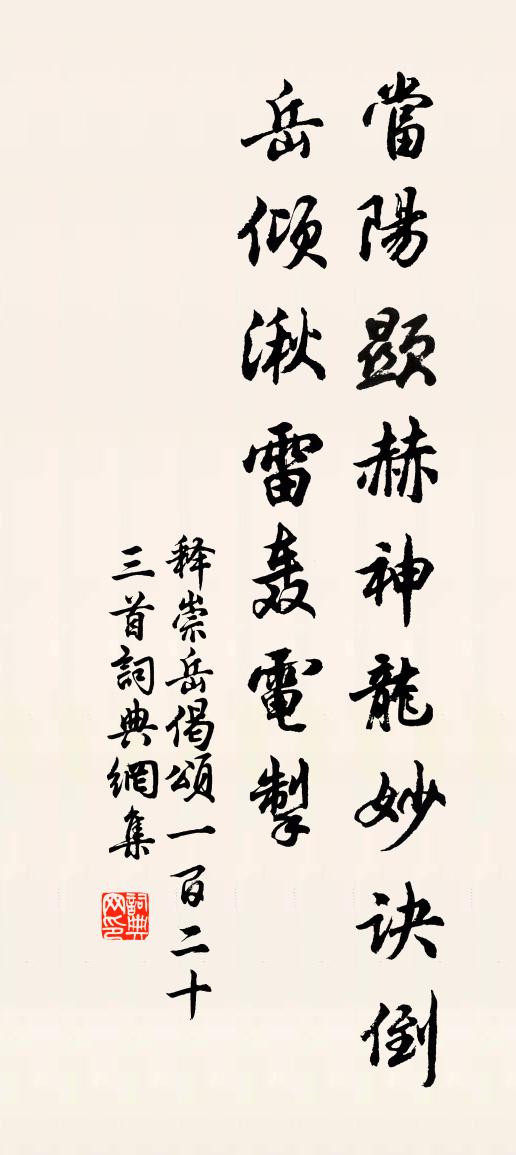 當陽顯赫神龍妙诀倒
岳傾湫雷轰電掣
释崇岳偈頌一百二十
三首詞典網集
詞典網印